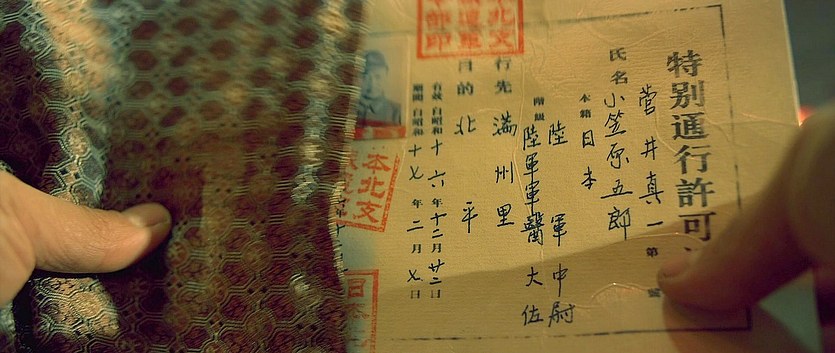 特別通行許可
菅井真一 第 號
氏名 小笠原五郎
本籍 日本
陸軍中尉
階級 陸軍軍醫大佐
行先 満州里
目的 北平
有效 自昭和十六年十二月廿二日
期間 自昭和十七年二月七日
北支
部印
本北支
日本